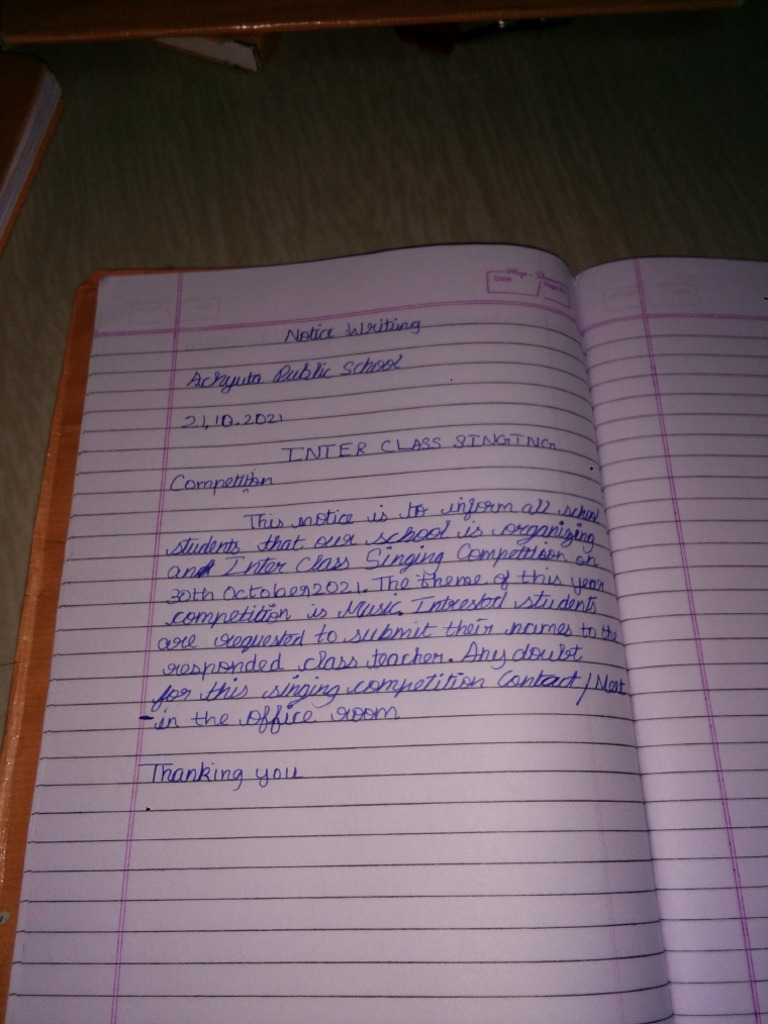 Date
Page No
Notice Writing
Achyuta Public School
21.10.2021
INTER CLASS SINGING
Competition
This notice is to inform all school
students that our school is organizing
and Inter Class Singing Competition on
30th October 2021. The theme of this year
competition is Music. Intrested students
are requested to submit their names to the
responded class teacher. Any doubt
for this singing competition Contact /
in the office room
Thanking you